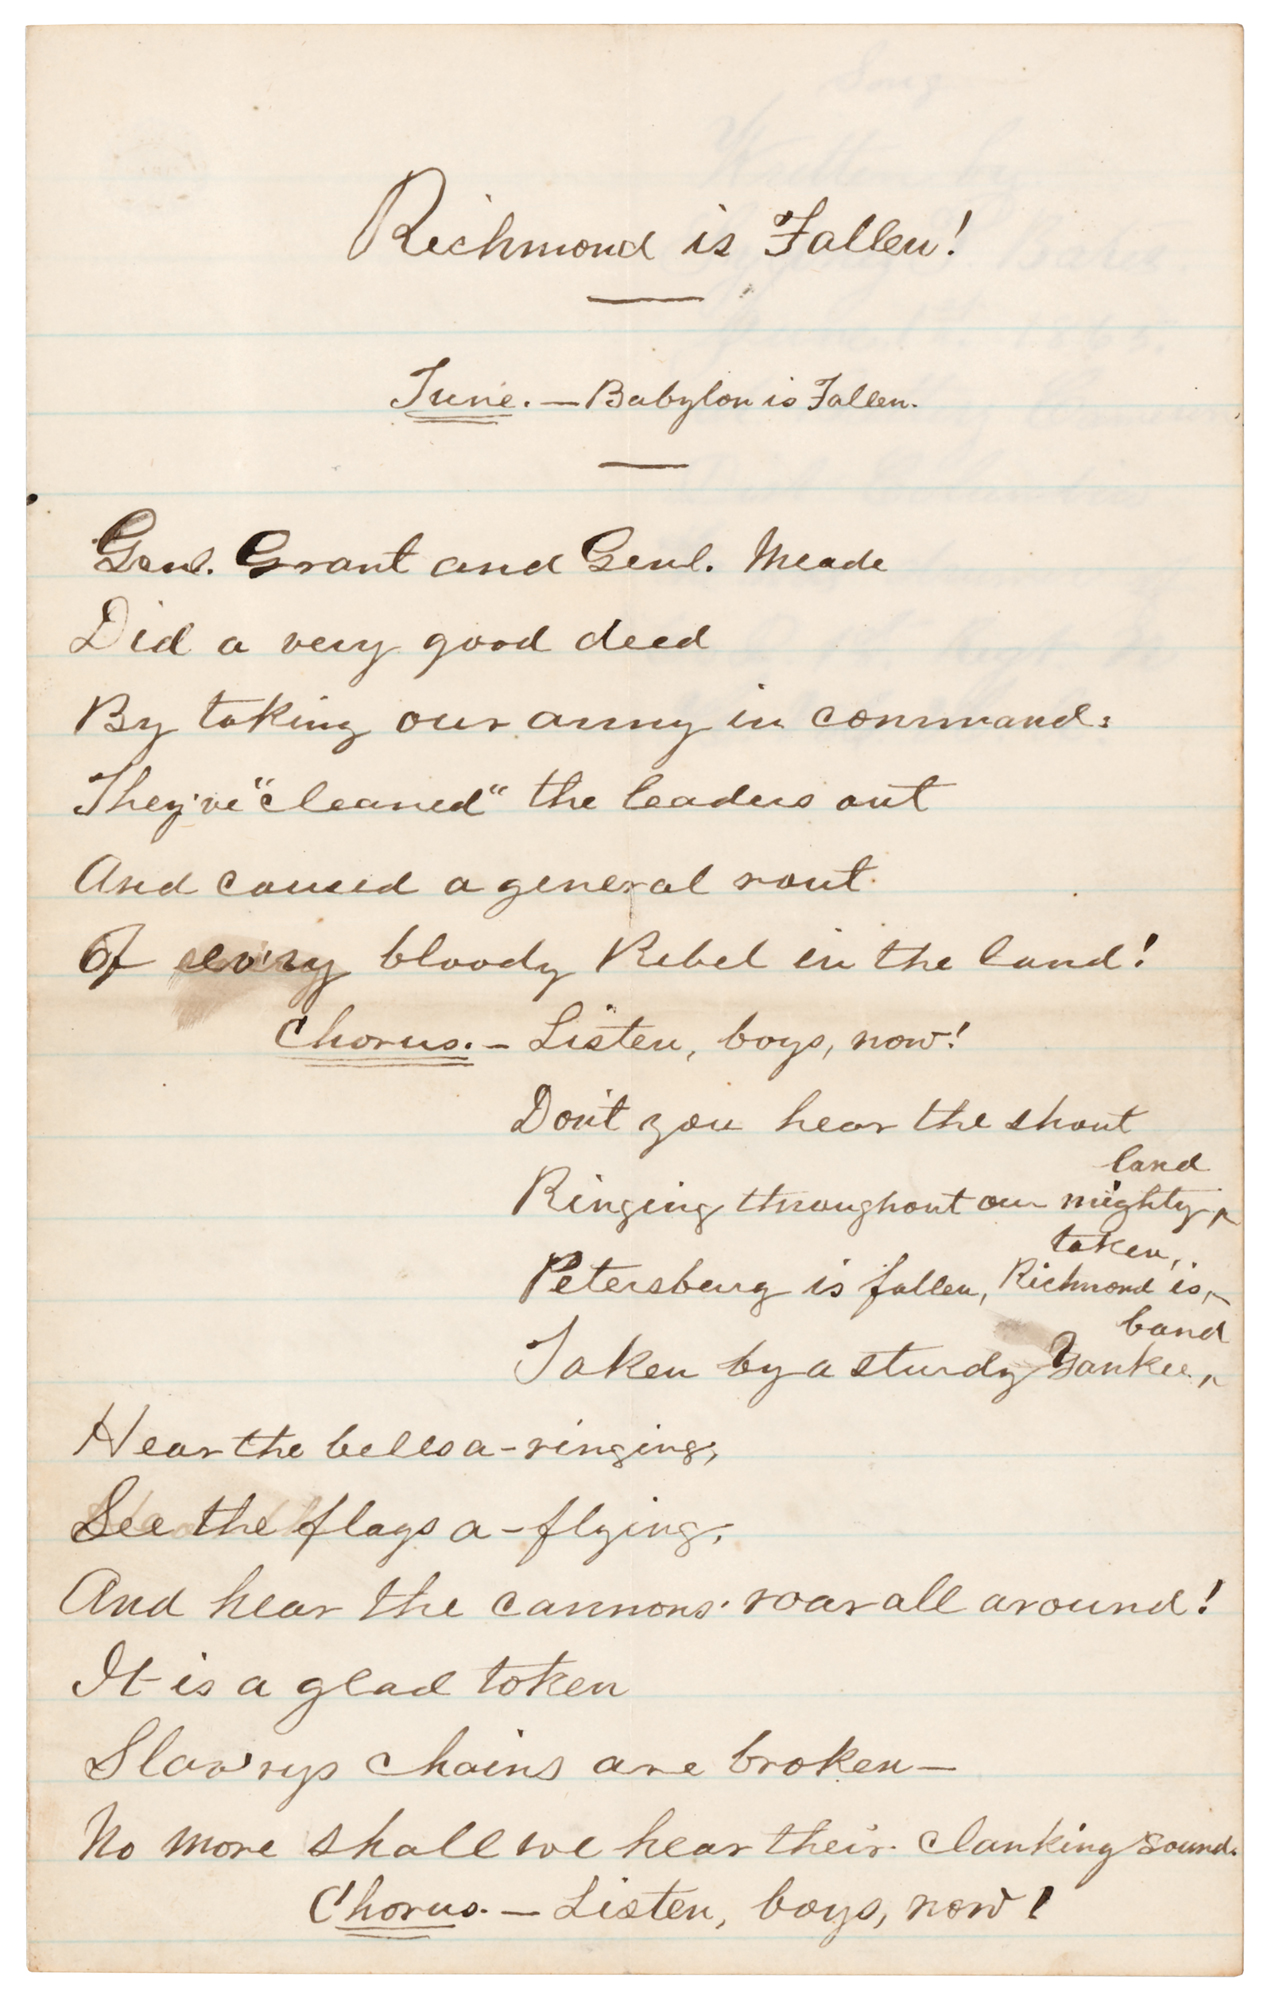 Richmond is Fallen!
Tune. — Babylon is Fallen.
Genl. Grant and Genl. Meade
Did a very good deed
By taking our army in command:
They've "cleaned" the leaders out
And caused a general rout
Of ev'ry bloody Rebel in the land!
Chorus. — Listen, boys, now!
Don't you hear the shout
Ringing throughout our mighty land
Petersburg is fallen, Richmond is taken,
Taken by a sturdy Yankee band
Hear the bells a-ringing,
See the flags a-flying,
And hear the cannons roar all around!
It is a glad token
Slav'rys chains are broken —
No more shall we hear their clanking sound.
Chorus. — Listen, boys, now!